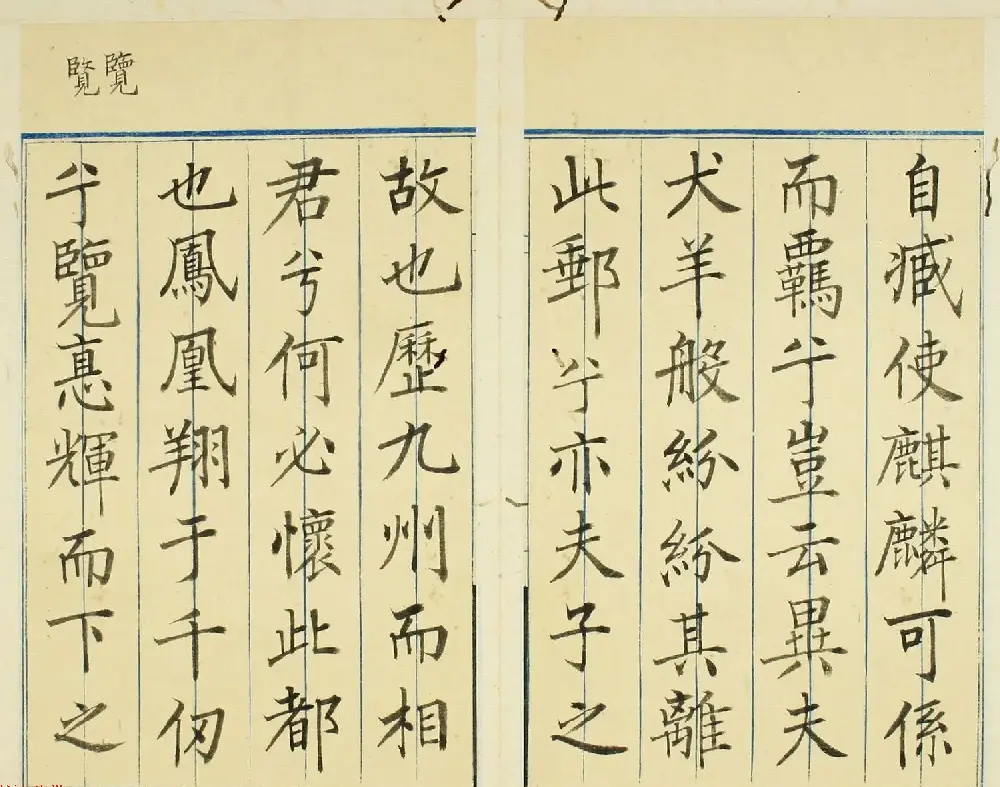 自臧使麒麟可係
而羈兮豈云異夫
犬羊般紛紛其離
此郵兮亦夫子之
故也歷九州而相
君兮何必懷此都
也鳳凰翔于千仞
兮覽悳輝而下之
覽覧